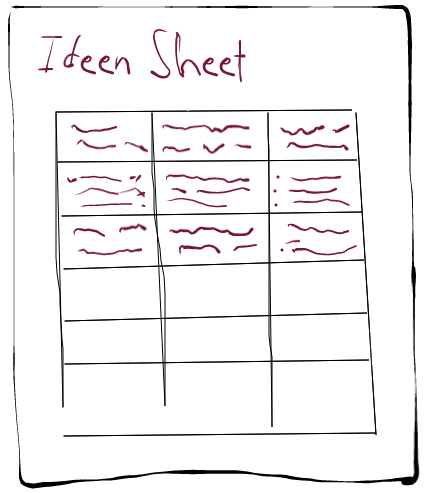 Ideen Sheet